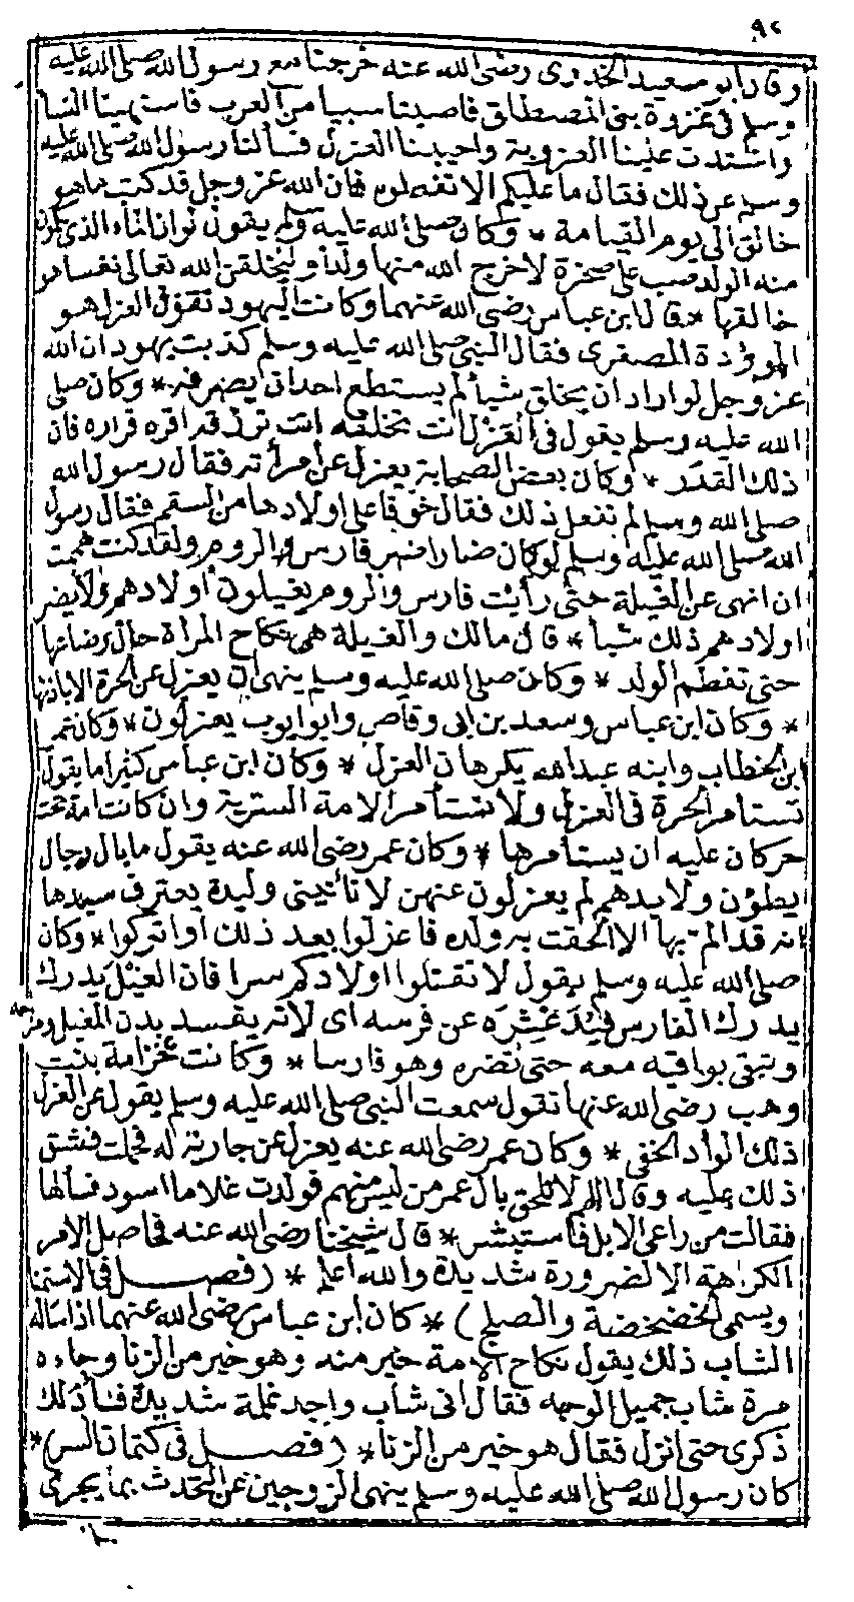 ٩٢
وقال أبو سعيد الخدرى رضى الله عنه خرجنا مع رسول الله صلى الله عليه
وسلم فى غزوة بنى المصطلق فاصبنا سبيا من العرب فاشتهينا النسا
واشتدت علينا العزوبة واحببنا العزل فسألنا رسول الله صلى الله عليه
وسلم عن ذلك فقال ما عليكم الا تفعلوه فان الله عز وجل قد كتب ما هو
خالق الى يوم القيامة * وكان صلى الله عليه وسلم يقول لو ان الماء الذى يكون
منه الولد صب على صخرة لاخرج الله منها ولدا وليخلقن الله تعالى نفسا هو
خالقها * قال ابن عباس رضى الله عنهما وكانت اليهود تقول العزل هو
الموؤدة الصغرى فقال النبى صلى الله عليه وسلم كذبت يهود ان الله
عز وجل لو اراد ان يخلق شيأ لم يستطع احد ان يصرفه * وكان صلى
الله عليه وسلم يقول فى العزل أنت تخلقه انت ترزقه اقره قراره فان
ذلك القدر * وكان بعض الصحابة يعزل عن امرأته فقال رسول الله
صلى الله وسلم لم تفعل ذلك فقال خوفا على اولادها من السقم فقال رسول
الله صلى الله عليه وسلم لو كان ضارا ضر فارس والروم ولقد كنت هممت
ان انهى عن الغيلة حتى رأيت فارس والروم يغيلون أولادهم ولا يضر
اولادهم ذلك شيأ * قال مالك والغيلة هى نكاح المرأة حال رضاعها
حتى تفطم الولد * وكان صلى الله عليه وسلم ينهى ان يعزل عن الحرة الا باذنها
* وكان ابن عباس وسعد بن ابى وقاص وابو ايوب يعزلون * وكان عمر
ابن الخطاب وابنه عبد الله يكرهان العزل * وكان ابن عباس كثيرا ما يقول
تستامر الحرة فى العزل ولا تستأمر الامة السترية وان كانت امة تحت
حر كان عليه ان يستأمرها * وكان عمر رضى الله عنه يقول ما بال رجال
يطؤن ولايدهم لم يعزلون عنهن لا تأتينى وليدة يعترف سيدها
انه قد الم بها الا الحقت به ولده فاعزلوا بعد ذلك او اتركوا * وكان
صلى الله عليه وسلم يقول لا تقتلوا اولادكم سرا فان الغيل يدرك
يدرك الفارس فيدعثره عن فرسه اى لانه يفسد بدن المغيل ومزاجه
وتبقى بواقيه معه حتى تضره وهو فارسا * وكانت جذامة بنت
وهب رضى الله عنها تقول سمعت النبى صلى الله عليه وسلم يقول عن العزل
ذلك الوأد الخفى * وكان عمر رضى الله عنه يعزل عن جارية له فحملت فشق
ذلك عليه وقال اللهم لا تلحق بال عمر من ليس منهم فولدت غلاما اسود فسألها
فقالت من راعى الابل فاستبشر * قال شيخنا رضى الله عنه فحاصل الامر
الكراهة الا لضرورة شديدة والله أعلم * (فصل فى الاستمنا
ويسمى الخضخضة والصلج) * كان ابن عباس رضى الله عنهما اذا سأله
الشاب ذلك يقول نكاح الامة خير منه وهو خير من الزنا وجاءه
مرة شاب جميل الوجه فقال انى شاب واجد غلمة شديدة فأدلك
ذكرى حتى انزل فقال هو خير من الزنا * (فصل فى كتمان السر) *
كان رسول الله صلى الله عليه وسلم ينهى الزوجين عن التحدث بما يجرى